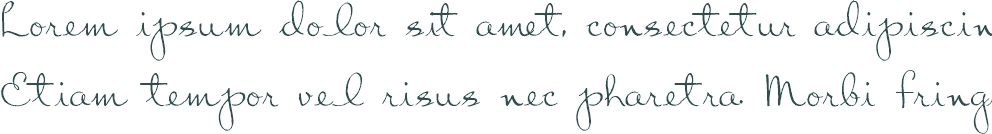 Lorem ipsum dolor sit amet, consectetur adipiscin
Etiam tempor vel risus nec pharetra. Morbi fring